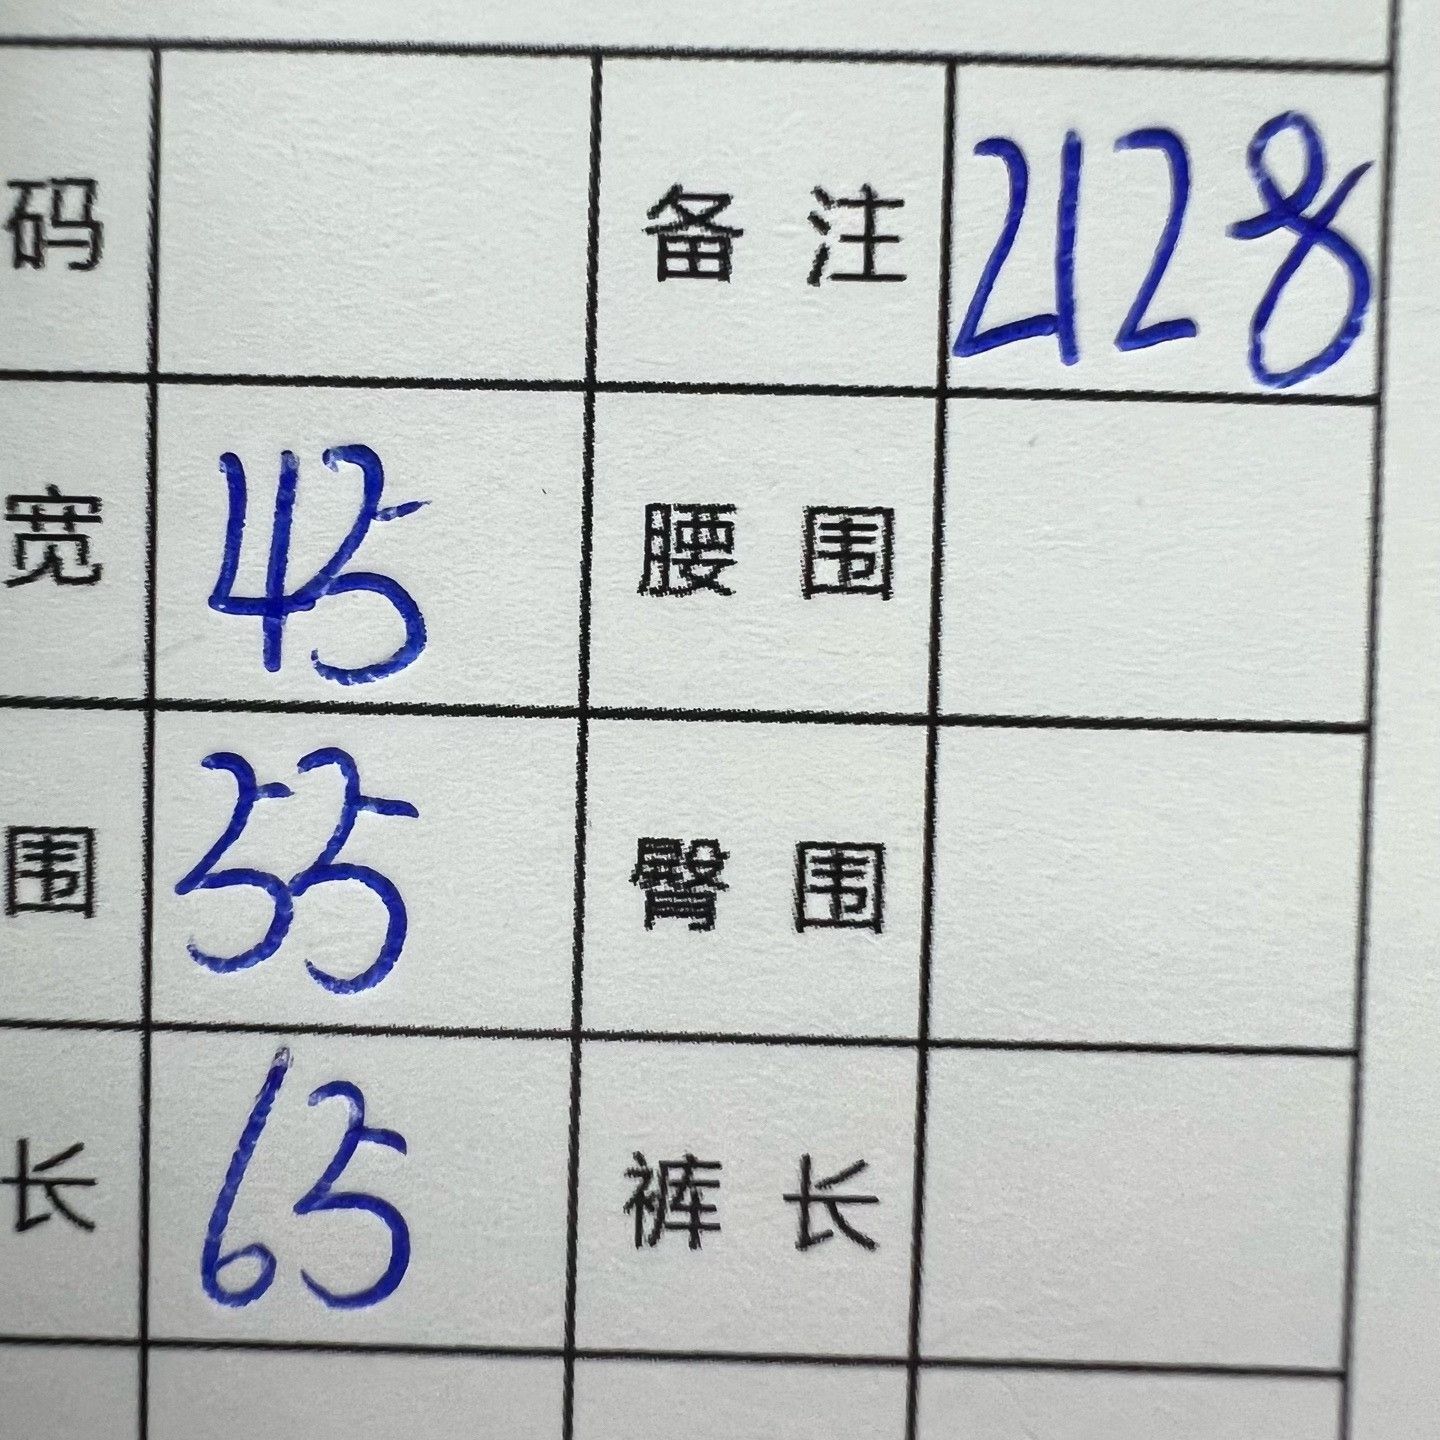 码 备注 2128
宽 45 腰围
围 55 臀围
长 65 裤长